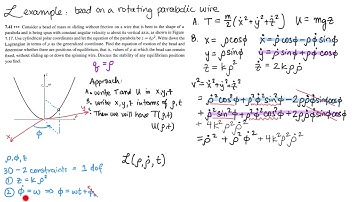 L example: bead on a rotating parabolic wire
7.41 *** Consider a bead of mass m sliding without friction on a wire that is bent in the shape of a
parabola and is being spun with constant angular velocity ω about its vertical axis, as shown in Figure
7.17. Use cylindrical polar coordinates and let the equation of the parabola be z = kρ². Write down the
Lagrangian in terms of ρ as the generalized coordinate. Find the equation of motion of the bead and
determine whether there are positions of equilibrium, that is, values of ρ at which the bead can remain
fixed, without sliding up or down the spinning wire. Discuss the stability of any equilibrium positions
you find.
q = ρ
Approach:
1. write T and U in x, y, z
2. write x, y, z in terms of ρ, t
3. Then we will have T(ρ, t)
U(ρ, t)
x
φ
ρ, φ, z
3D - 2 constraints = 1 dof
① z = kρ²
② φ̇ = ω ⇒ φ = ωt + φ₀
L(ρ, ρ̇, t)
A. T = m/2 (ẋ² + ẏ² + ż²) U = mgz
B. x = ρcosφ ẋ = ρ̇cosφ - ρφ̇sinφ
y = ρsinφ ẏ = ρ̇sinφ + ρφ̇cosφ
z = kρ² ż = 2kρρ̇
v² = ẋ² + ẏ² + ż²
= ρ̇²cos²φ + ρ²φ̇²sin²φ - 2ρρ̇φ̇sinφcosφ
+ ρ̇²sin²φ + ρ²φ̇²cos²φ + 2ρρ̇φ̇sinφcosφ
+ 4k²ρ²ρ̇²
= ρ̇² + ρ²φ̇² + 4k²ρ²ρ̇²